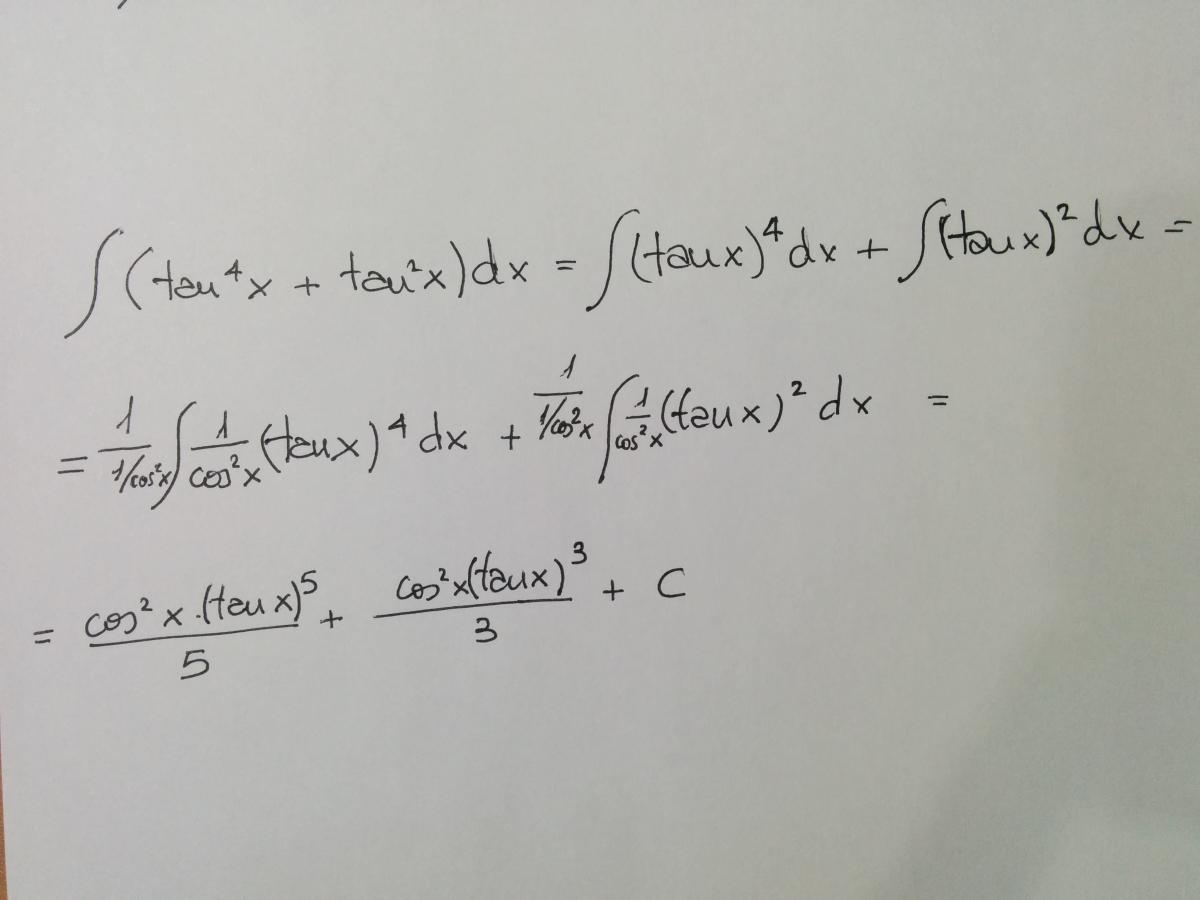 ∫(tan⁴x + tan²x)dx = ∫(tanx)⁴dx + ∫(tanx)²dx =
= 1/(1/cos²x) ∫ 1/cos²x (tanx)⁴ dx + 1/(1/cos²x) ∫ 1/cos²x (tanx)² dx =
= (cos²x·(tanx)⁵)/5 + (cos²x(tanx)³)/3 + C